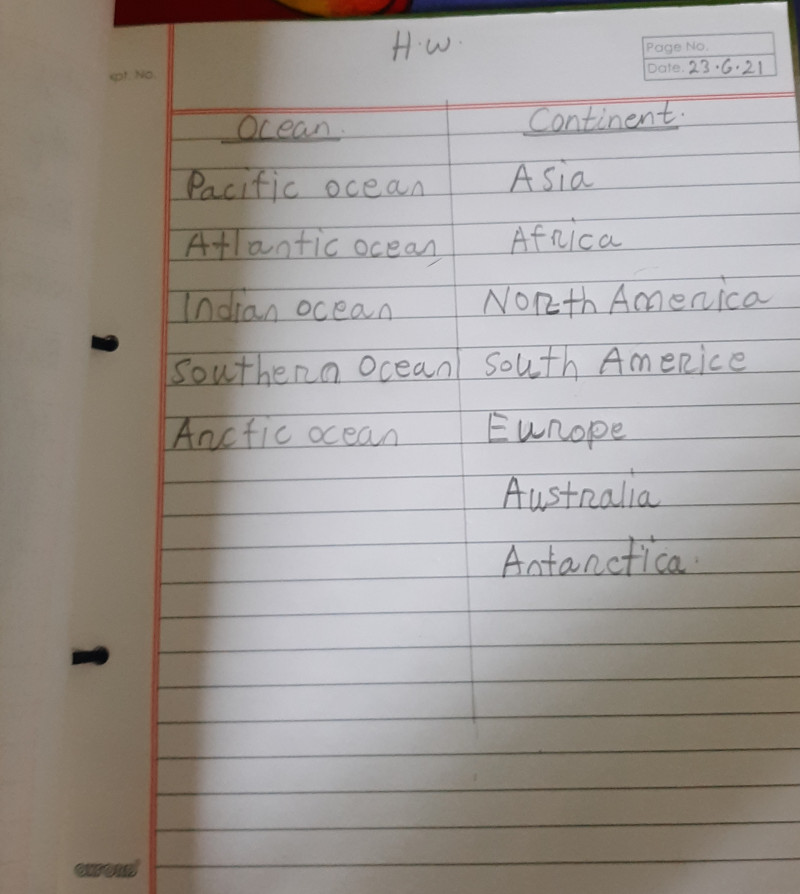 H.W.
Page No.
Expt. No.
Date. 23.6.21
Ocean. Continent.
Pacific ocean Asia
Atlantic ocean Africa
Indian ocean North America
Southern Ocean South Americe
Arctic ocean Europe
Australia
Antarctica.